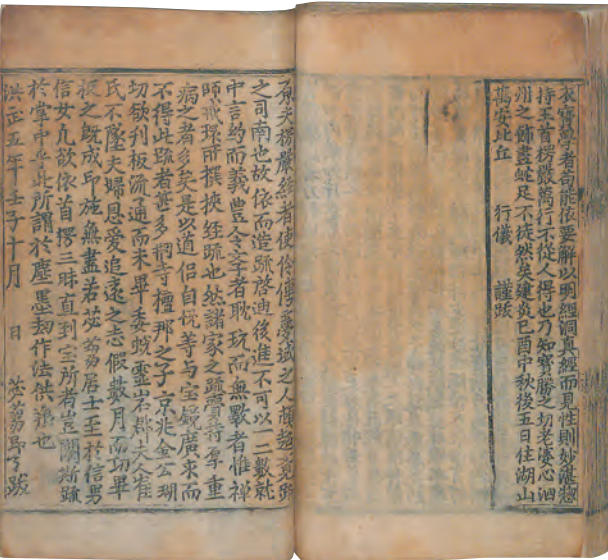 衣寶學者苟能依要解以明經洞真經而見性則妙湛惣
持王首楞嚴萬行不從人得也乃知寶勝之切老婆心泗
州之飾畫蛇足不徒然矣建炎己酉中秋後五日住湖山
萬安比丘 行儀 謹跋
原夫楞嚴經者使伶俜
之司南也故依而造䟽啓迪後進不可以一二數就
中言約而義豊令学者耽玩而無斁者惟禅
師戒環所撰挾經䟽也然諸家之䟽賣尋享重
病之者多矣是以道侣自恱等与宝鏡廣求而
不得此䟽者甚多桐寺檀那之子京兆金公瑚
切欲刋板流通而未畢委蛻霊岩郡夫人崔
氏不墜夫婦恩愛追遠之志假數月而功畢
梭之既成印施無盡若苾蒭居士至於信男
信女凢歆依首楞三昧直到宝所者豈關斯䟽
於掌中乎此所謂於塵墨刧作法供飬也
洪正五年壬子十月 日 苾蒭 跋